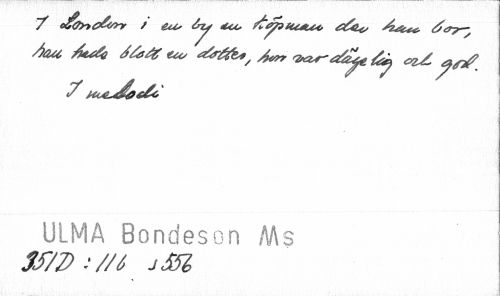 I London i en by en köpman där han bor,
han hade blott en dotter, hon var dägelig och god.
I melodi
ULMA Bondeson Ms
351D : 116 s 556